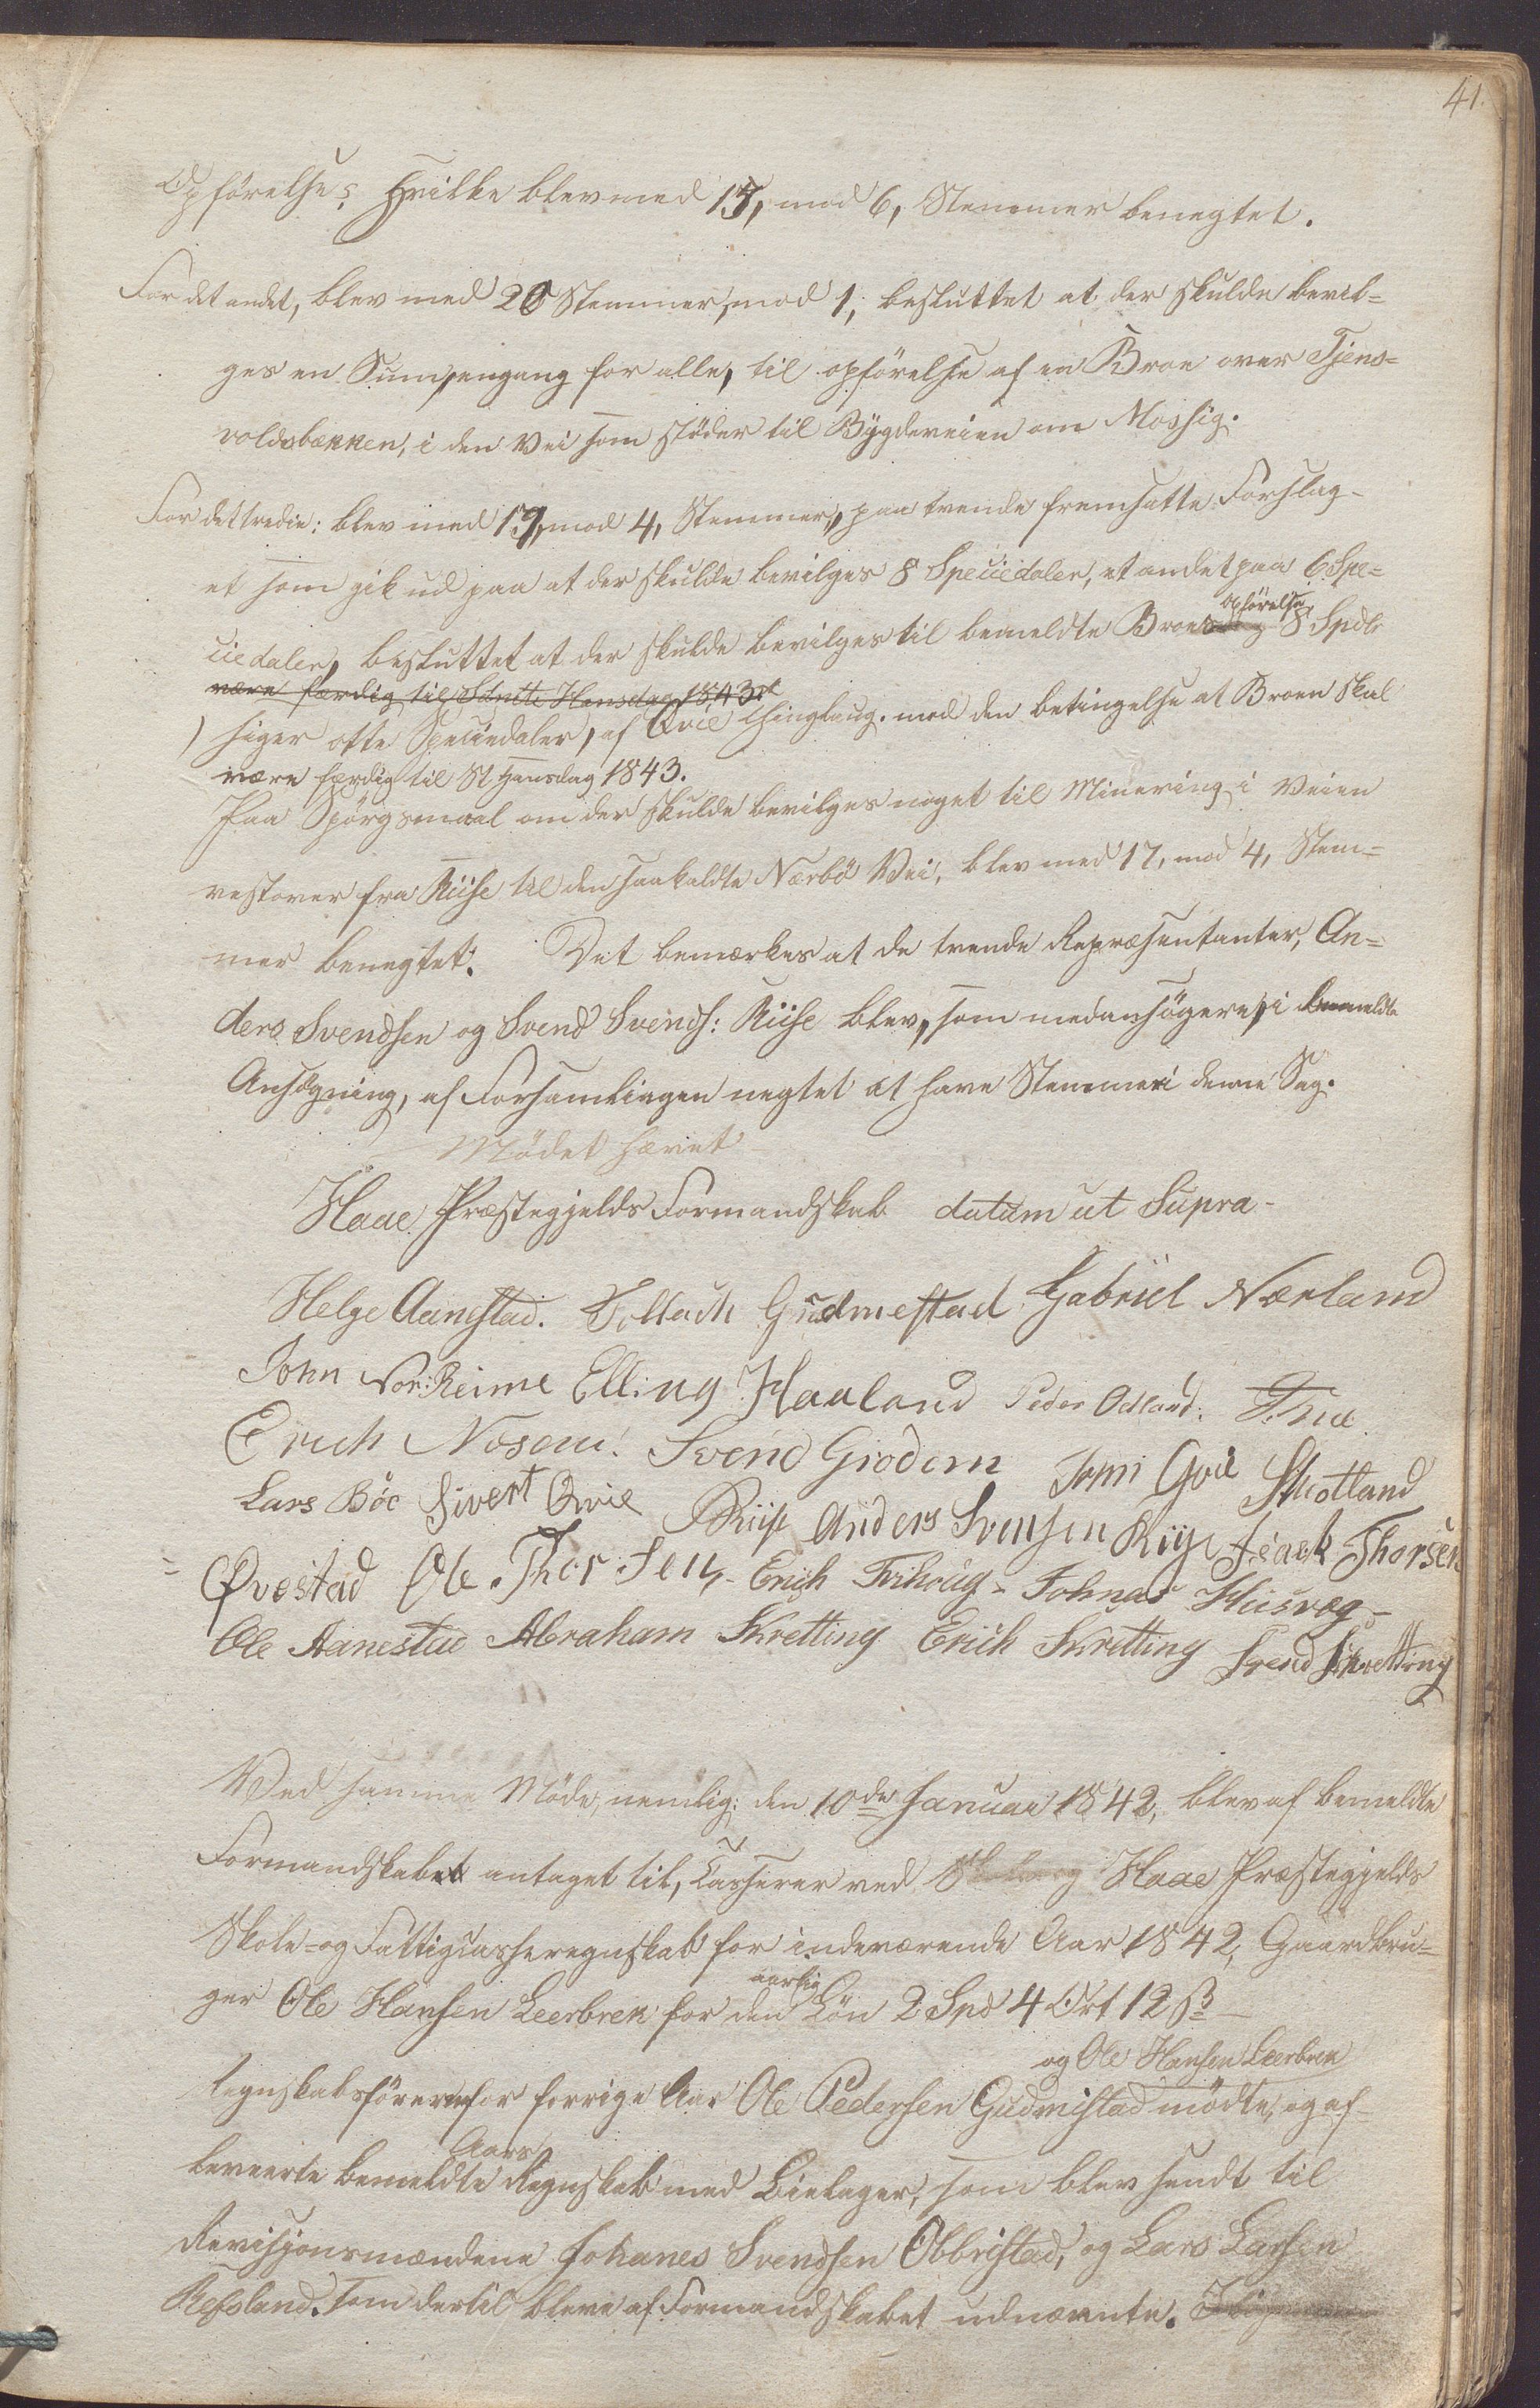 41.
Opförelse; Hvilke blev med 15, mod 6, Stemmer benegtet.
For det andet, blev med 20 Stemmer, mod 1, besluttet at der skulde bevil=
ges en Sum, engang for alle, til opförelse af en Broe over Tjens=
voldsbækken, i den Vei som stöder til Bygdeveien om Mossig.
For det tredie: blev med 17, mod 4, Stemmer, paa trende fremsatte Forslag
et som gik ud paa at der skulde bevilges 8 Speciedaler, et andet paa 6 Spe=
opförelse
ciedaler, besluttet at der skulde bevilges til bemeldte Broes 8 Spdlr
være færdig til Sancte Hansdag 1843.
siger otte Speciedaler, af Qvie Thinglaug. med den betingelse at Broen skal
være færdig til St Hansdag 1843.
Paa Spörgsmaal om der skulde bevilges noget til Minering i Veien
vestover fra Riise til den saakaldte Nærbö Vei, blev med 17, mod 4, Stem=
mer benegtet. Det bemærkes at de trende Repræsentanter, An=
ders Svendsen og Svend Svends: Riise blev, som medansögere, i bemeldte
Ansøgning, af Forsamlingen negtet at have Stemmer i denne Sag.
Mödet hævet
Haae Præstegjelds Formandskab datum ut Supra
Helge Aanestad. Tollach Gudmestad Gabriel Nærland
John Nor: Reime Elling Haaland Peder Odland.
Erich Nosem. Svend Grödem Qvie Skotland
Lars Böe Sivert Qvie Riise Anders Svensen Riise Isack Thorsen
Qvestad Ole Thorsen Erich Tohnas Husvæg
Ole Aanestad Abraham Skretting Erich Skretting Svend Skretting
Ved samme Möde, nemlig: den 10de Januar 1842, blev af bemeldte
Formandskabet antaget til, Casserer ved Haae Præstegjelds
Skole- og Fattigcasseregnskab for indeværende Aar 1842, Gaardbru=
aarlig
ger Ole Hansen Leerbrek for den Lön 2 Spd 4 Ort 12 ß
og Ole Hansen Leerbrek
Regnskabsföreren for forrige Aar Ole Pedersen Gudmestad mödte, og af-
Aars
leverte bemeldte Regnskab med Bielager, som blev sendt til
Revisjonsmændene Johanes Svendsen Obbrestad, og Lars Larsen
Refsland. som dertil bleve af Formandskabet udnævnte.